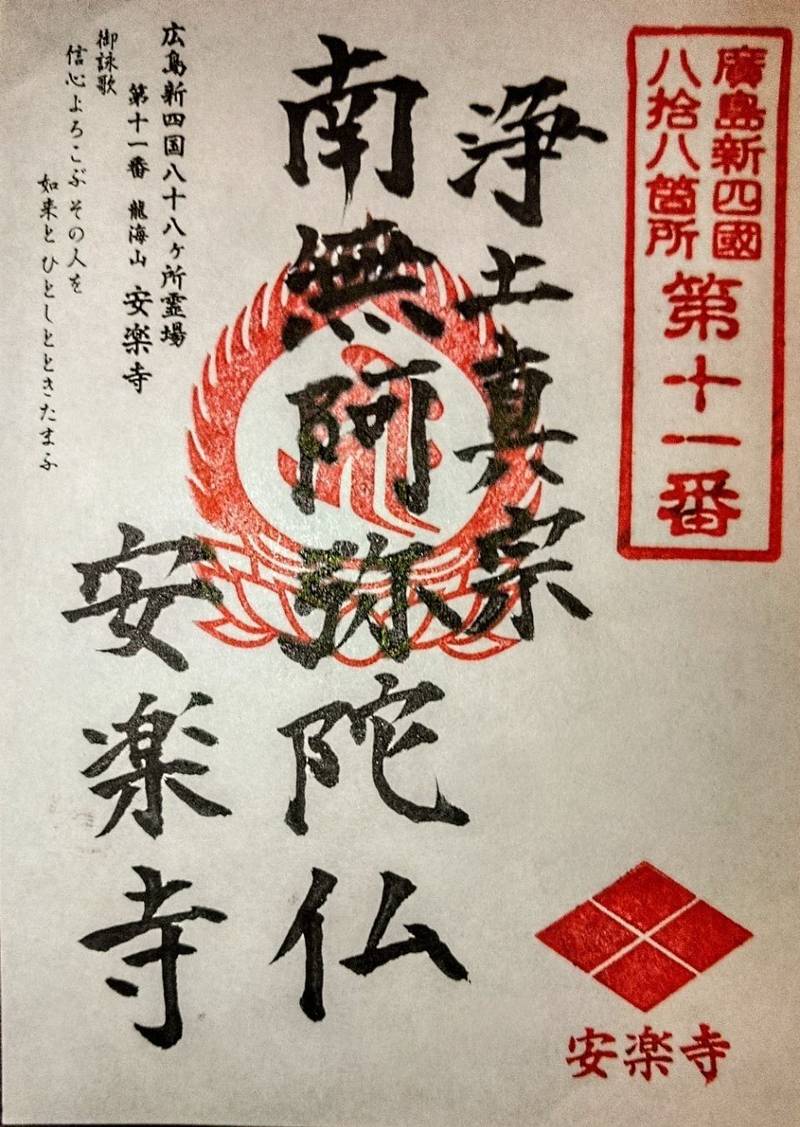 廣島新四國
八拾八箇所
第十一番
浄土真宗
南無阿弥陀仏
安楽寺
広島新四国八十八ヶ所霊場
第十一番 龍海山 安楽寺
御詠歌
信心よろこぶ その人を
如来と ひとしとときたまふ
安楽寺